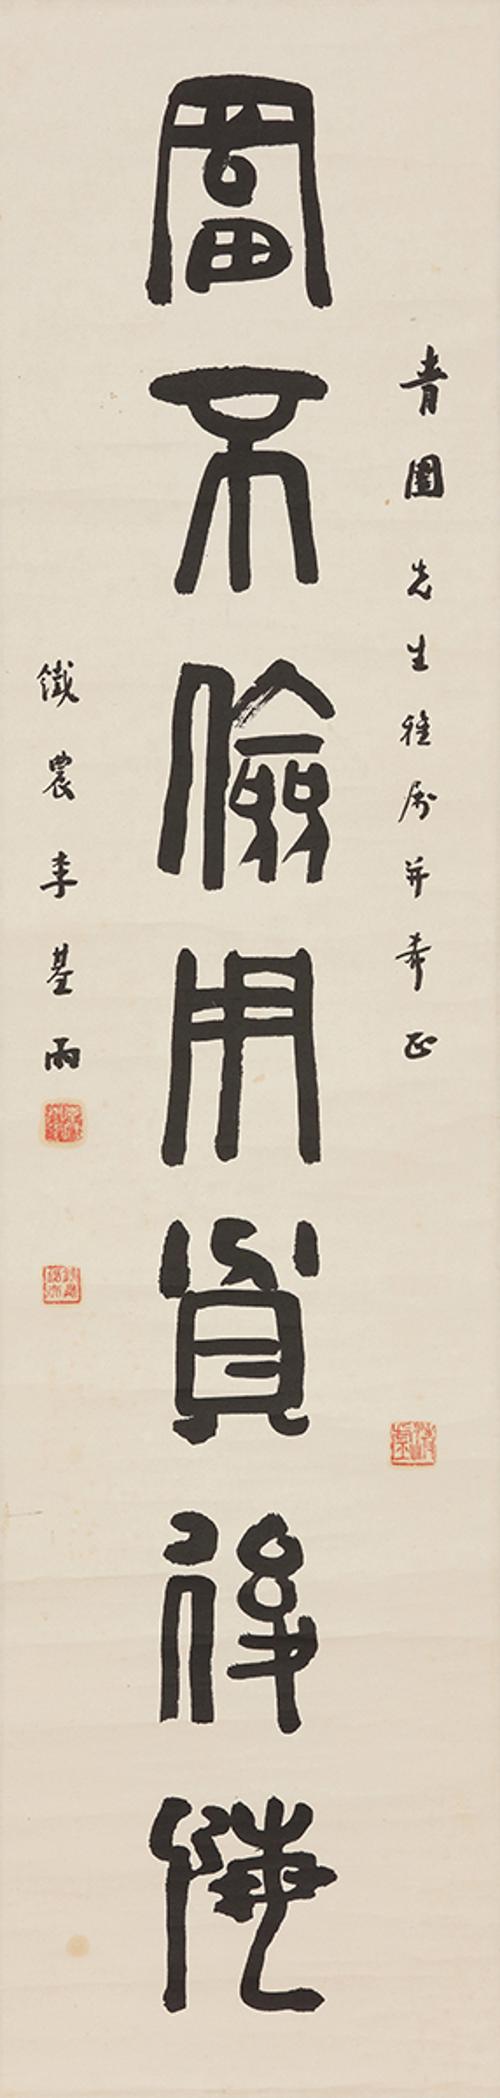 青園先生雅屬并希正
富不儉用貧後悔
鐵農李基雨